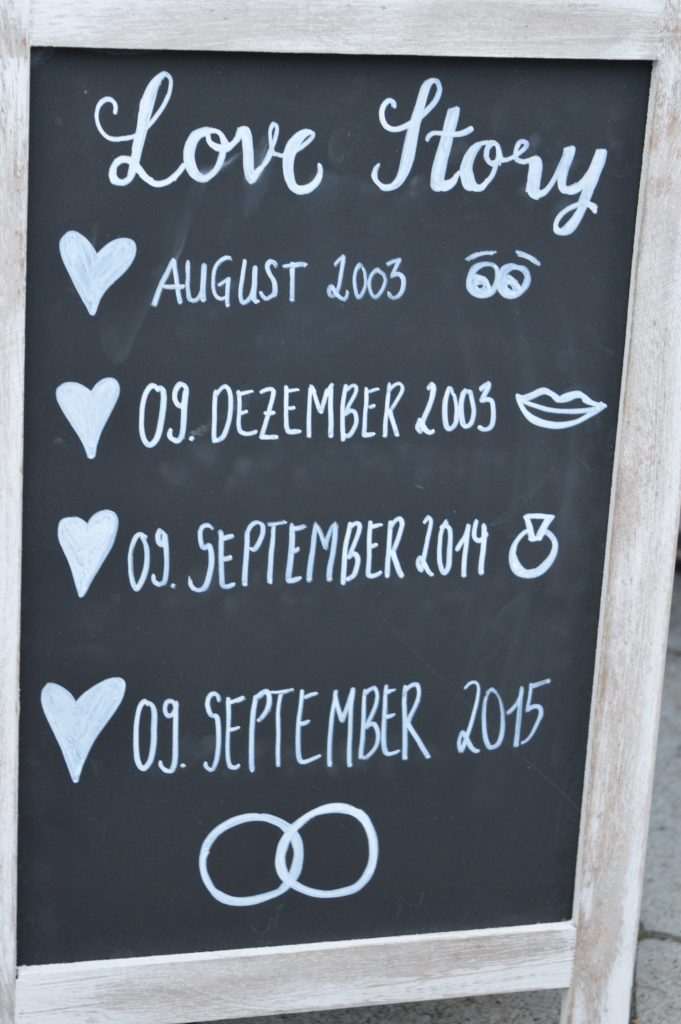 Love Story
AUGUST 2003
09. DEZEMBER 2003
09. SEPTEMBER 2014
09. SEPTEMBER 2015